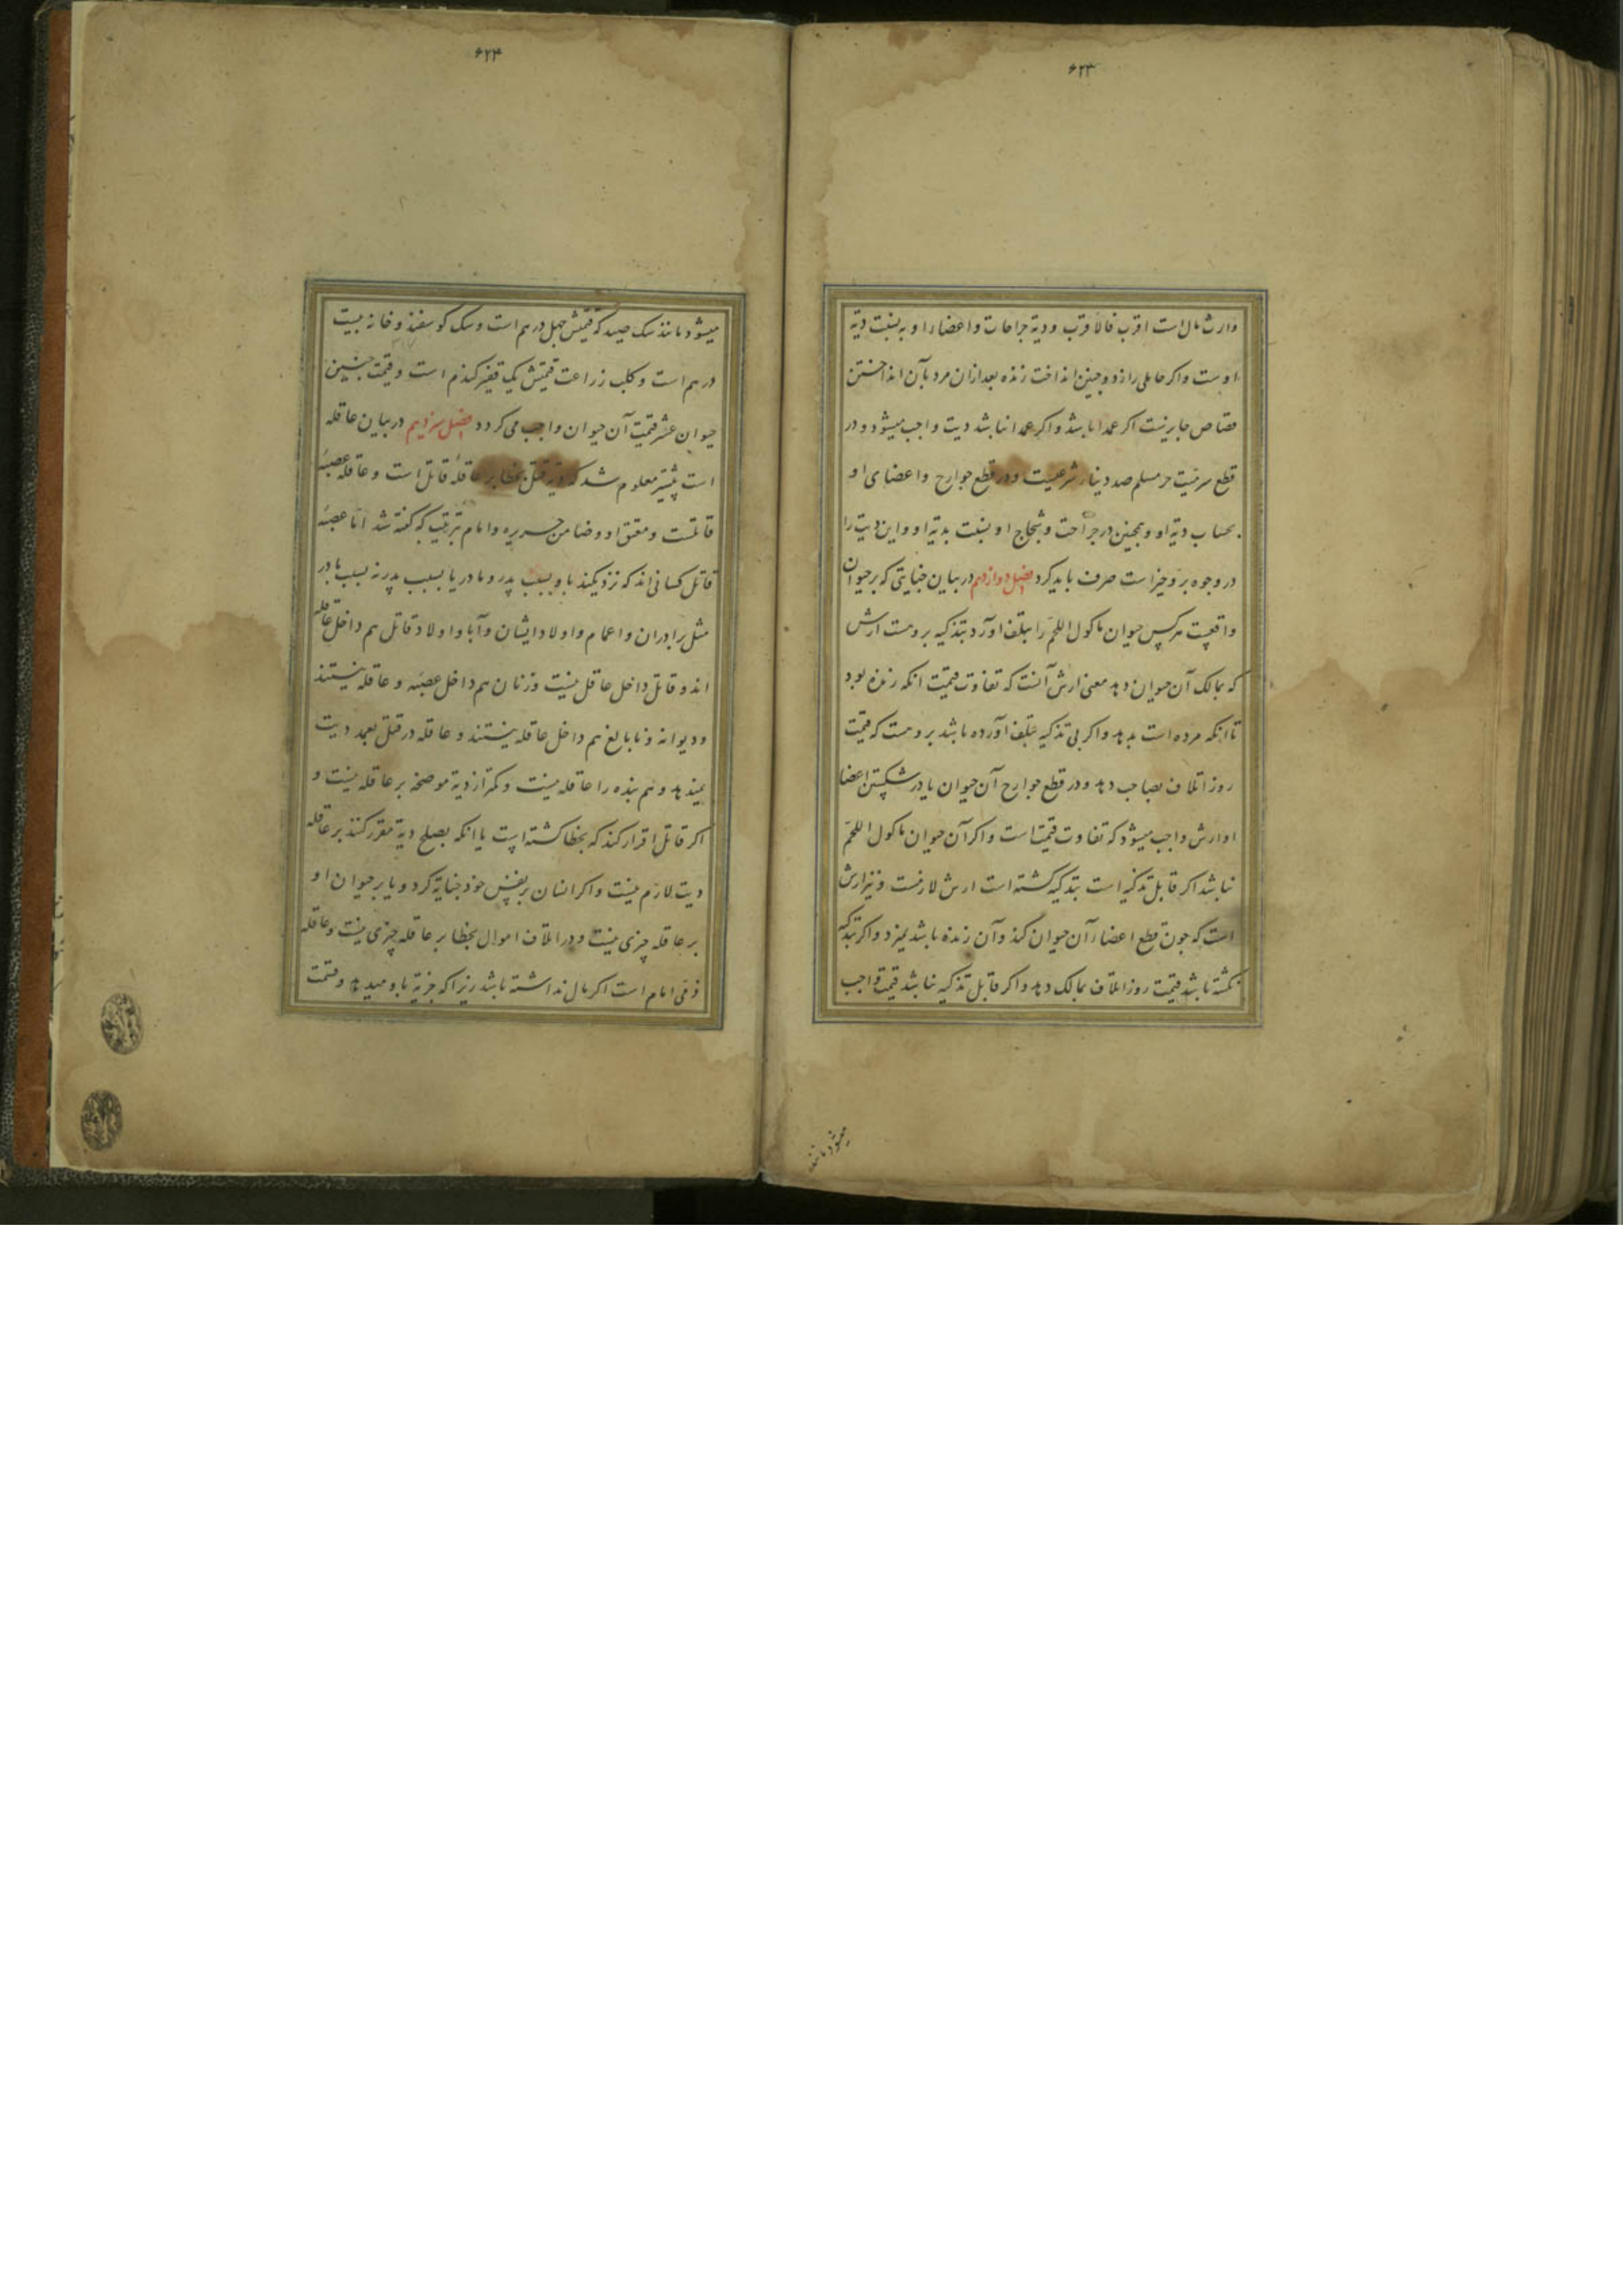 ۶۲۳
وارث مال است اقرب فالاقرب و دیة جراحات و اعضاء او به نسبت دیة
اوست و اگر حاملی را زد و جنین انداخت زنده بعد از ان مرد بآن انداختن
قصاص جایزنست اکر عمدا باشد و اکر عمدا نباشد دیت واجب میشود و در
قطع سر میّت حر مسلم صد دینار شرعیست و در قطع جوارح و اعضای او
بحساب دیة او و همچنین در جراحت و شجاج او بنسبت بدیة او و این دیت را
در وجوه بر و خیرات صرف باید کرد فصل دوازدهم در بیان جنایتی که بر حیوان
واقعست هرکس حیوان ماکول اللحم را بتلف آورد بتذکیه بروست ارش
که بمالک آن حیوان دهد معنی ارش آنست که تفاوت قیمت انکه زنده بود
تا انکه مرده است بدهد و اکر بی تذکیه بتلف آورده باشد بروست که قیمت
روز اتلاف بصاحب دهد و در قطع جوارح آن حیوان یا در شکستن اعضا
او ارش واجب میشود که تفاوت قیمت است و اکر آن حیوان ماکول اللحم
نباشد اکر قابل تذکیه است بتذکیه کشته است ارش لازمست و نیز ارش
است که چون قطع اعضاء آن حیوان کند و آن زنده باشد نمیرد و اکر بتذکیه
نکشته باشد قیمت روز اتلاف بمالک دهد و اکر قابل تذکیه نباشد قیمت واجب
میشود مانند
۶۲۴
میشود مانند سک صید که قیمتش چهل درهم است و سک کوسفند و خانه بیست
درهم است و کلب زراعت قیمتش یک قفیز کندم است و قیمت جنین
حیوان عشر قیمت آن حیوان واجب می کردد فصل سیزدهم در بیان عاقله
است پیشتر معلوم شد که دیة قتل بخطا بر عاقلهٔ قاتل است و عاقله عصبهٔ
قاتلست و معتق او و ضامن جریره و امام بترتیب که گفته شد امّا عصبهٔ
قاتل کسانی اند که نزدیکند باو بسبب پدر و مادر یا بسبب پدر نه بسبب مادر
مثل برادران و اعمام و اولاد ایشان و آبا و اولاد قاتل هم داخل عاقله
اند و قاتل داخل عاقل نیست و زنان هم داخل عصبه و عاقله نیستند
و دیوانه و نابالغ هم داخل عاقله نیستند و عاقله در قتل بعمد دیت
نمیدهد و هم بنده را عاقله نیست و کمتر از دیة موضحه بر عاقله نیست و
اکر قاتل اقرار کند که بخطا کشته است یا انکه بصلح دیة مقرر کنند بر عاقله
دیت لازم نیست و اکر انسان بر نفس خود جنایة کرد و یا بر حیوان او
بر عاقله چیزی نیست و در اتلاف اموال بخطا بر عاقله چیزی نیست و عاقله
ذمّی امام است اکر مال نداشته باشد زیرا که جزیة باو میدهد و قسمت